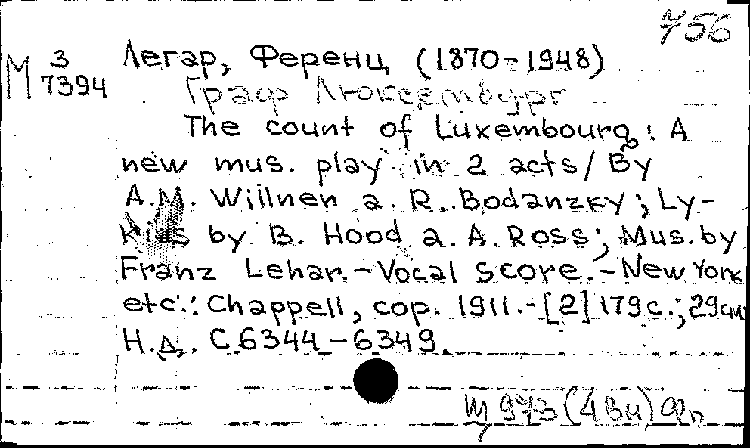 756
М 3 7394
Легар, Ференц (1870-1948)
Граф Люксембург
The count of Luxembourg: A
new mus. play in 2 acts/ By
A.M. Willnen a. R. Bodanzky; Ly-
by B. Hood a. A. Ross; Mus. by
Franz Lehar. - Vocal score. - New York
etc.: Chappell, cop. 1911. - [2] 179 с.; 29 см
Н.д. С 6344-6349
Щ 973 (4Вн)